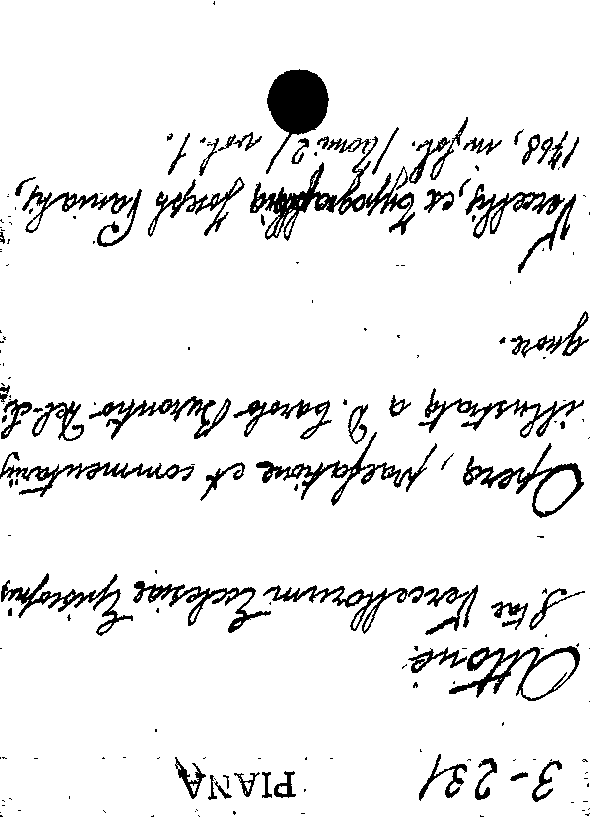 3-231 PIANA
Attone
S.tae Vercellorum Ecclesiae Episcopis
Opera, praefatione et commentariis
illustrata a D. Carolo Burontio Del-Si
gnore.
Vercellis, ex Typographia Joseph Panialis,
1768, in fol. (tomi 2) vol. 1.